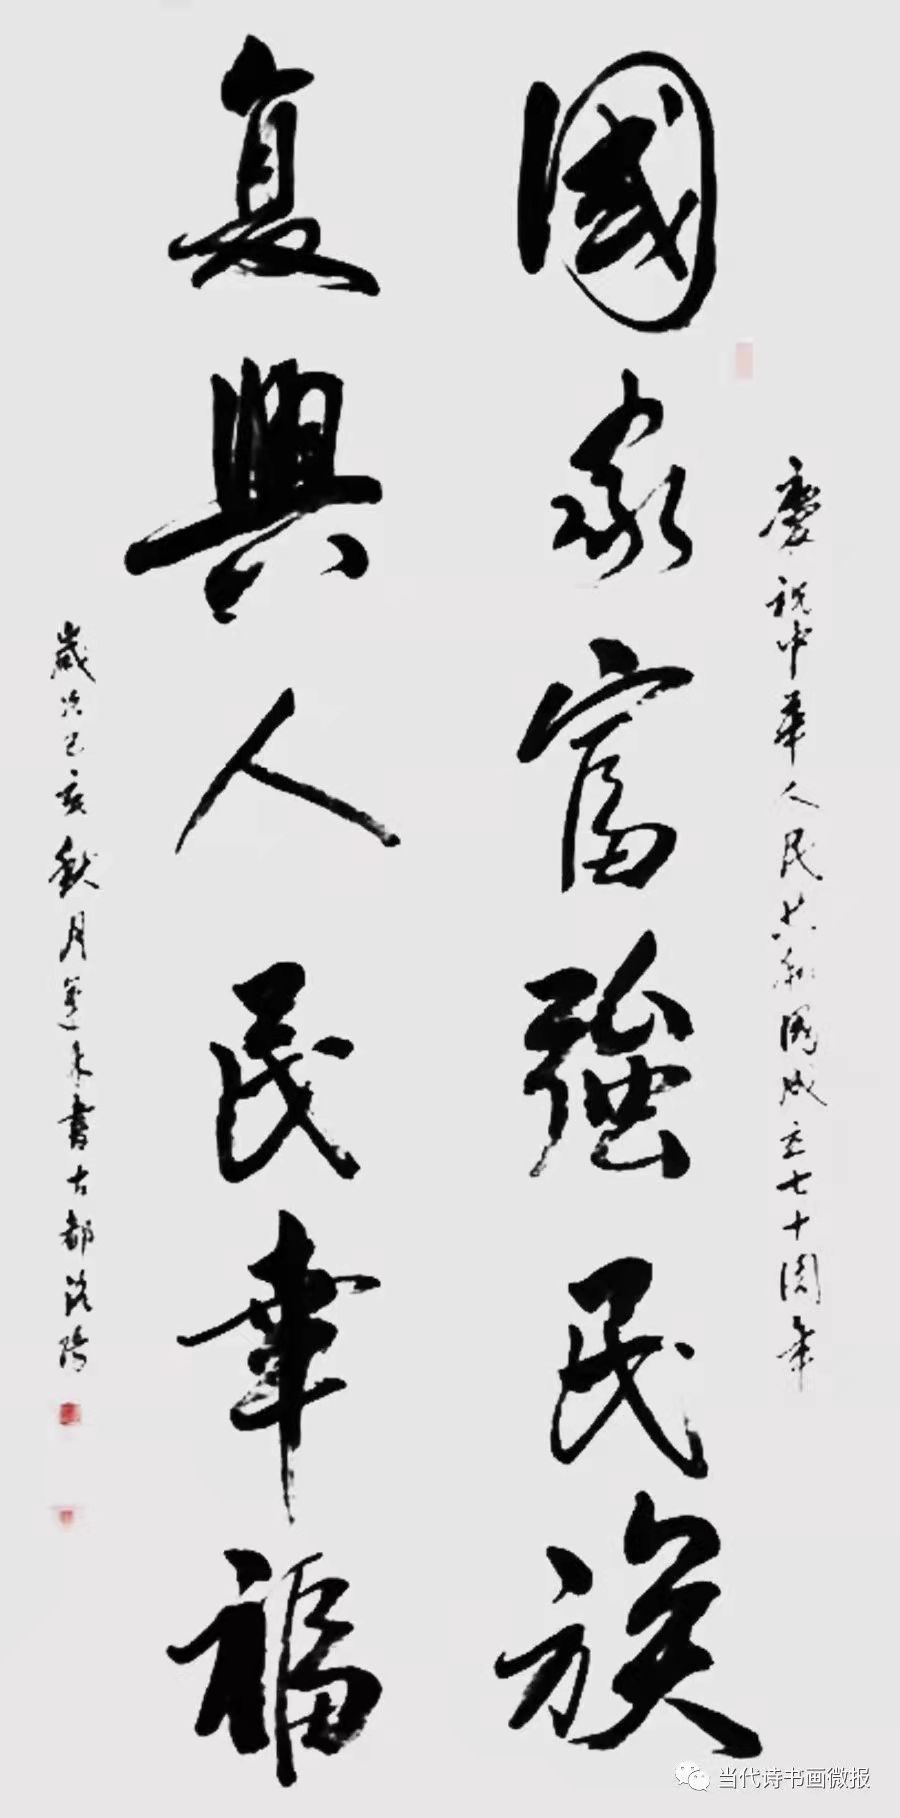 慶祝中華人民共和國成立七十周年
國家富強民族
复興人民幸福
歲次己亥秋月書古都洛陽
当代诗书画微报